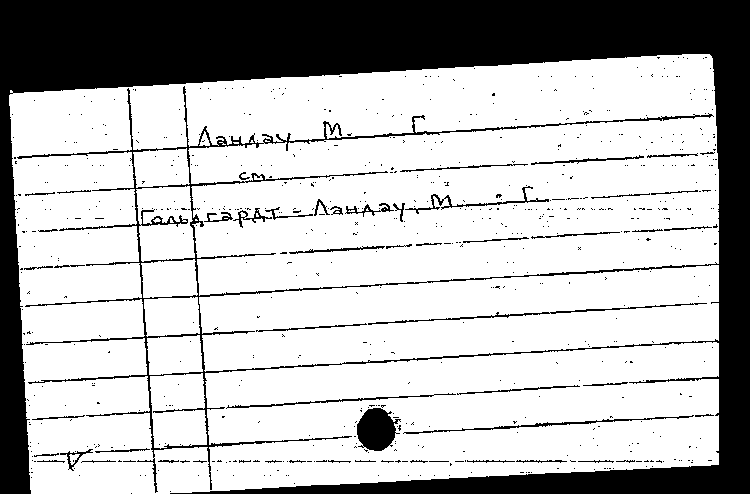 Ландау, М. Г.
см.
Гольдгардт - Ландау, М. Г.